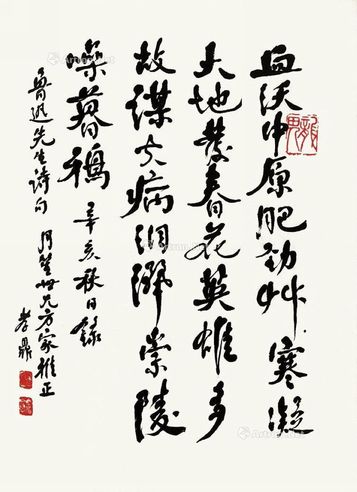 血沃中原肥劲艸寒凝
大地发春花英雄多
故谋夫病泪洒崇陵
噪暮鸦 辛亥秋日录
鲁迅先生诗句 阿莹世兄方家雅正
孝鼎